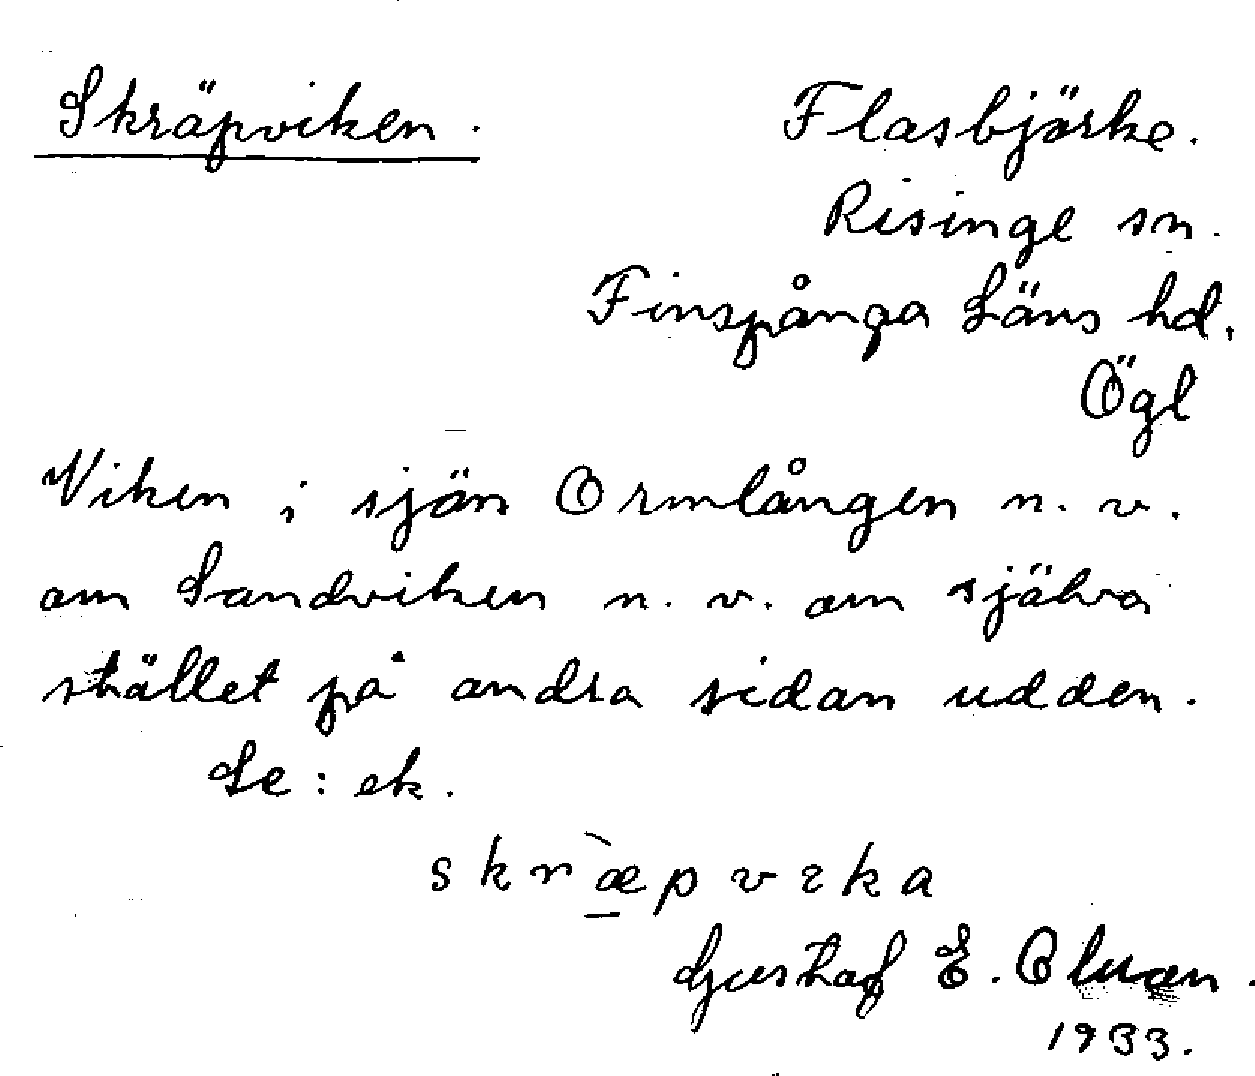 Skräpviken.
Flasbjörke.
Risinge sn.
Finspånga Läns hd.
Ögl
Viken i sjön Ormlången n. v.
om Sandviken n. v. om själva
stället på andra sidan udden.
Se: ek.
skræpvɩka
Gustaf E.
1933.